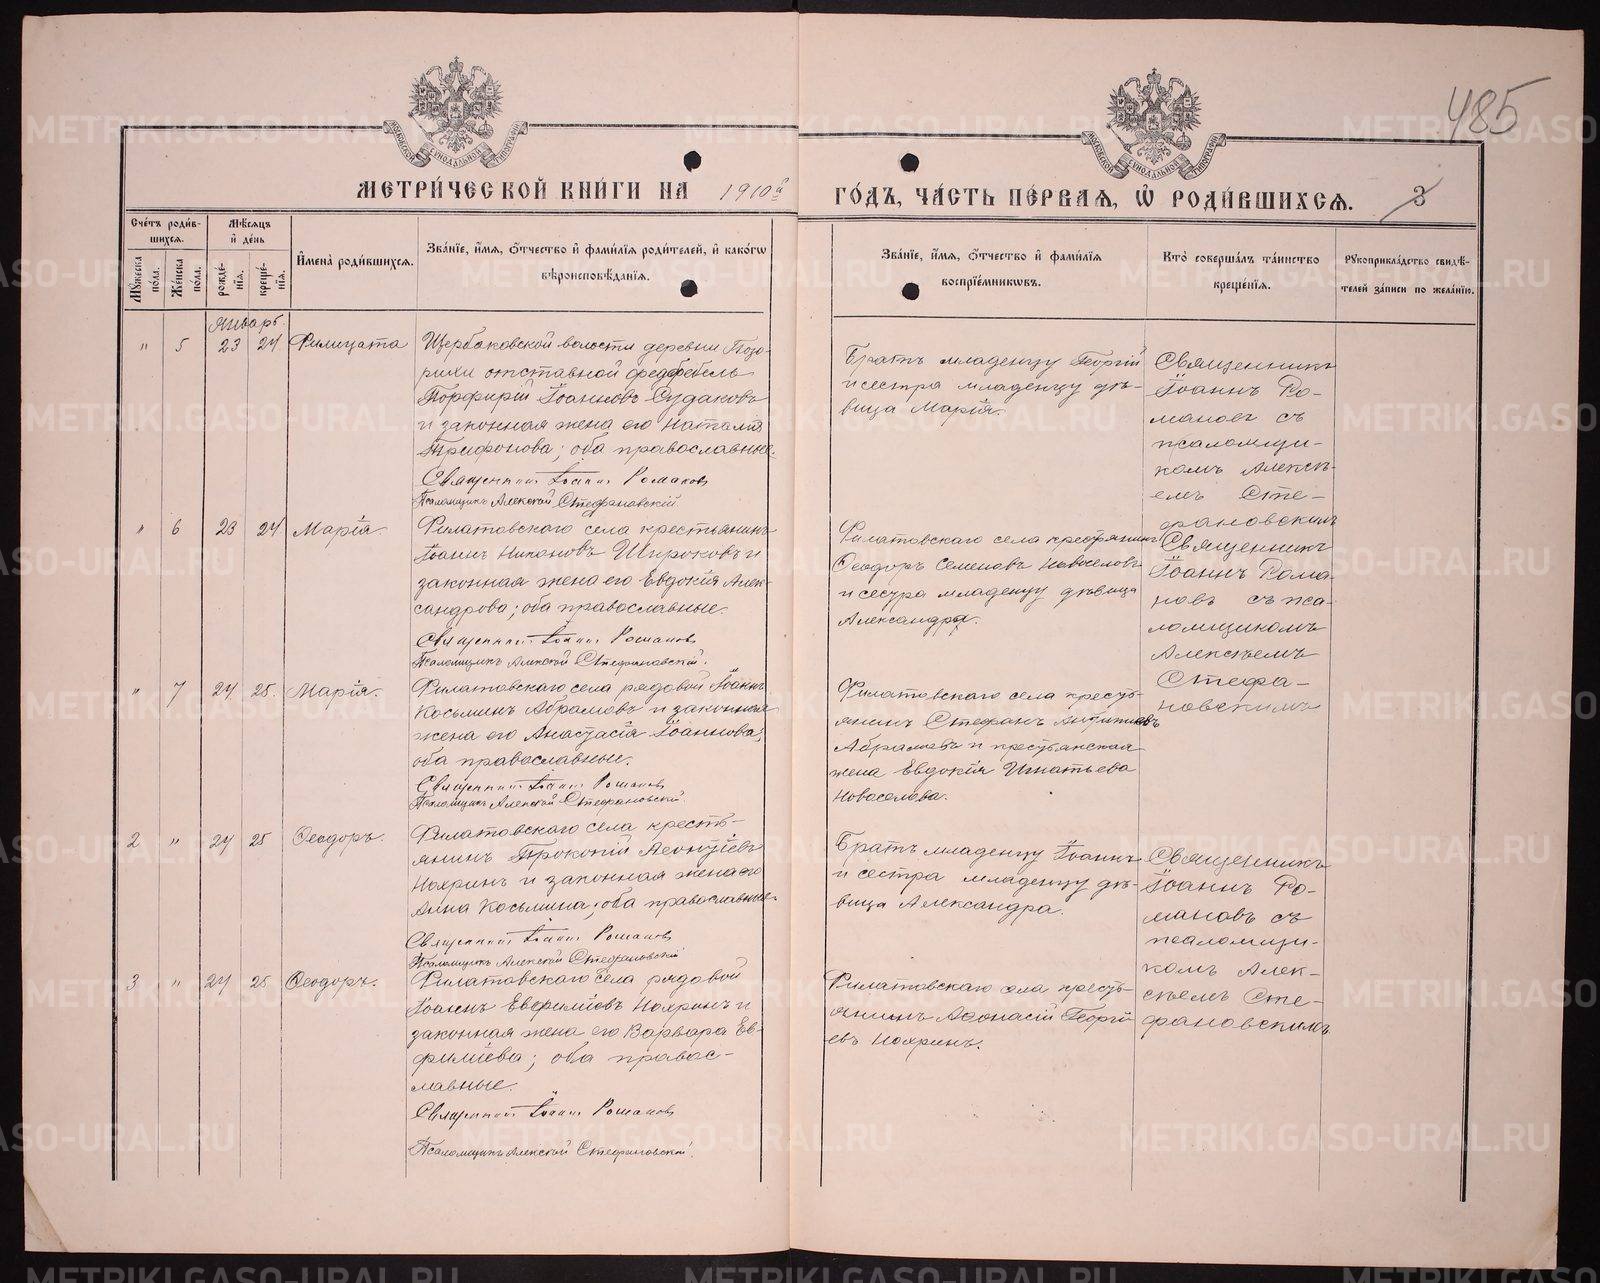 485
МОСКОВСКОЙ СѴНОДАЛЬНОЙ ТИПОГРАФІИ
МОСКОВСКОЙ СѴНОДАЛЬНОЙ ТИПОГРАФІИ
МЕТРИ́ЧЕСКОЙ КНИ́ГИ НА 1910й
ГО́ДЪ, ЧА́СТЬ ПЕ́РВАЯ, Ѡ҆ РОДИ́ВШИХСЯ. 3
Сче́тъ роди́в-
шихся.
Му́жеска
по́ла.
Же́нска
по́ла.
Мѣ́сяцъ
и҆ де́нь
рожде́-
нїя.
креще́-
нїя.
И҆мена̀ роди́вшихся.
Зва́нїе, и҆́мя, ѻ҆́тчество и҆ фами́лїя роди́телей, и҆ како́гѡ
вѣроисповѣ́данїя.
Зва́нїе, и҆́мя, ѻ҆́тчество и҆ фами́лїя
воспрїе́мникѡвъ.
Кто̀ соверша́лъ та́инство
креще́нїя.
Рꙋкоприкла́дство свидѣ́-
телей за́писи по жела́нїю.
Январь.
" 5 23 24 Филицата
Щербаковской волости деревни Позо-
рихи отставной федфебель
Порфирій Іоанновъ Судаковъ
и законная жена его Наталія
Трифонова; оба православные.
Священникъ Іоаннъ Романовъ
Псаломщикъ Алексій Стефановскій
Братъ младенцу Георгій
и сестра младенцу дѣ-
вица Марія.
Священникъ
Іоаннъ Ро-
мановъ съ
псаломщи-
комъ Алексѣ-
емъ Сте-
фановскимъ
" 6 23 24 Марія.
Филатовскаго села крестьянинъ
Іоаннъ Никоновъ Широковъ и
законная жена его Евдокія Алек-
сандрова; оба православные.
Священникъ Іоаннъ Романовъ
Псаломщикъ Алексій Стефановскій.
Филатовскаго села крестьянинъ
Ѳеодоръ Семеновъ Новоселовъ
и сестра младенцу дѣвица
Александра.
Священникъ
Іоаннъ Рома-
новъ съ пса-
ломщикомъ
Алексѣемъ
Стефа-
новскимъ
" 7 24 25. Марія.
Филатовскаго села рядовой Іоаннъ
Косьминъ Абрамовъ и законная
жена его Анастасія Іоаннова;
оба православные.
Священникъ Іоаннъ Романовъ
Псаломщикъ Алексій Стефановскій.
Филатовскаго села кресть-
янинъ Стефанъ
Абрамовъ и крестьянская
жена Евдокія Игнатьева
Новоселова.
2 " 24 25 Ѳеодоръ.
Филатовскаго села кресть-
янинъ Прокопій Леонтіевъ
Нохринъ и законная жена его
Анна Косьмина; оба православные.
Священникъ Іоаннъ Романовъ
Псаломщикъ Алексій Стефановскій
Братъ младенцу Іоаннъ
и сестра младенцу дѣ-
вица Александра.
Священникъ
Іоаннъ Ро-
мановъ съ
псаломщи-
комъ Алек-
сѣемъ Сте-
фановскимъ
3 " 24 25 Ѳеодоръ.
Филатовскаго села рядовой
Іоаннъ Евфиміовъ Нохринъ и
законная жена его Варвара Ев-
фиміева; оба право-
славные.
Священникъ Іоаннъ Романовъ
Псаломщикъ Алексій Стефановскій.
Филатовскаго села кресть-
янинъ Аѳонасій Георгі-
евъ Нохринъ.
METRIKI.GASO-URAL.RU